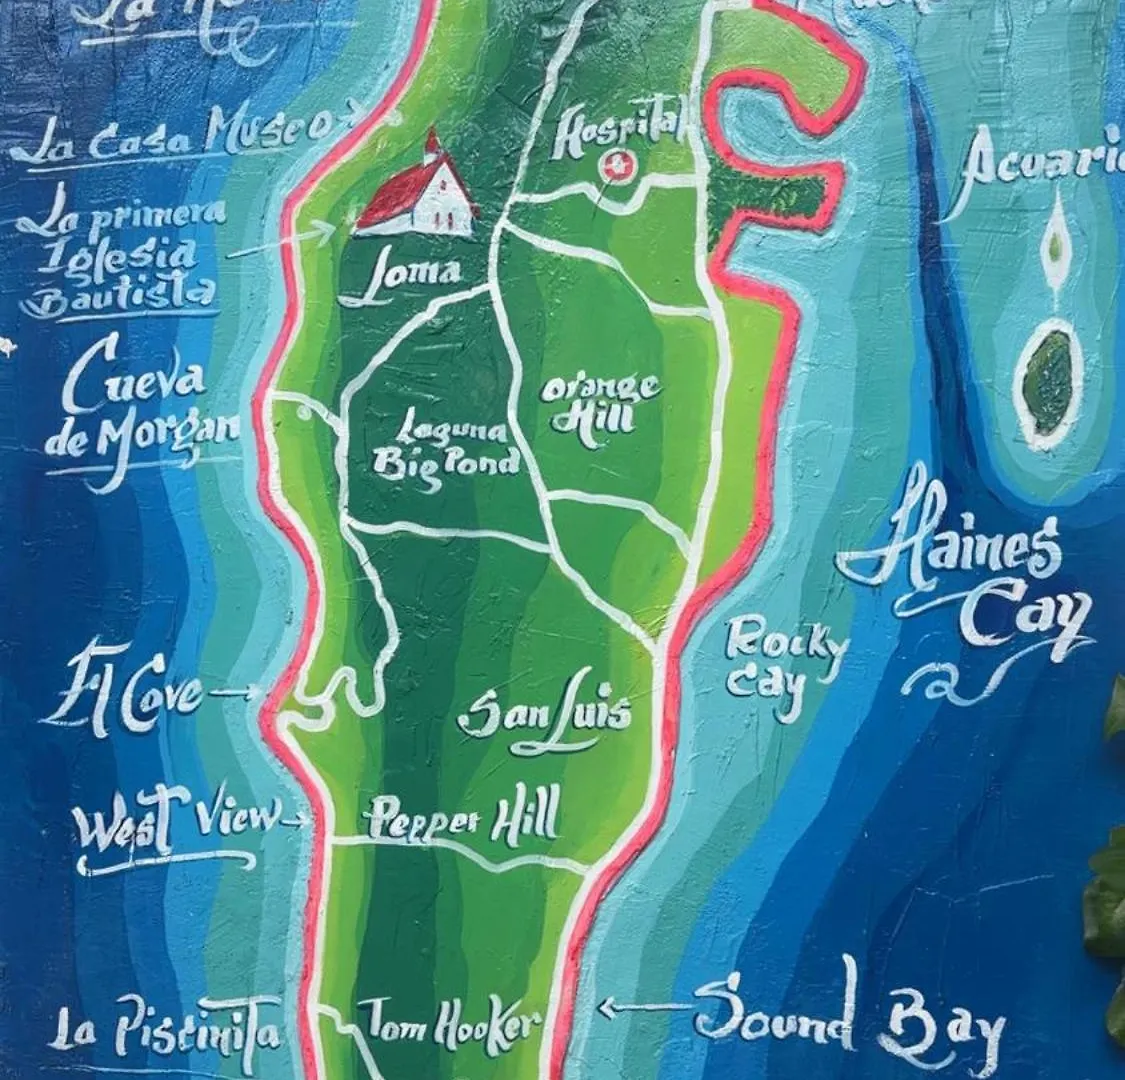 La
La Casa Museo
Hospital
Acuario
La primera
Iglesia
Bautista
Loma
Cueva
de Morgan
Orange
Hill
Laguna
Big Pond
Haines
Cay
Rocky
Cay
El Cove
San Luis
West View
Pepper Hill
La Piscinita
Tom Hooker
Sound Bay